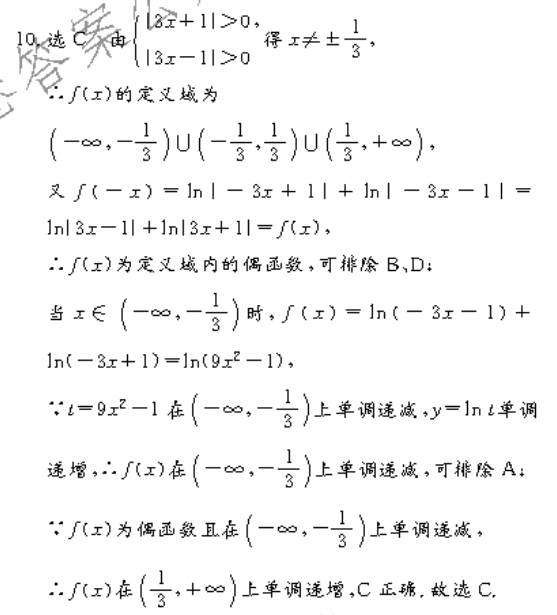 10. 选 C 由{|3x+1|>0, |3x-1|>0 得 x≠±1/3,
∴f(x)的定义域为
(-∞,-1/3)∪(-1/3,1/3)∪(1/3,+∞),
又 f(-x)=ln|-3x+1|+ln|-3x-1|=
ln|3x-1|+ln|3x+1|=f(x),
∴f(x)为定义域内的偶函数,可排除 B、D;
当 x∈(-∞,-1/3)时,f(x)=ln(-3x-1)+
ln(-3x+1)=ln(9x²-1),
∵t=9x²-1 在(-∞,-1/3)上单调递减,y=ln t单调
递增,∴f(x)在(-∞,-1/3)上单调递减,可排除 A;
∵f(x)为偶函数且在(-∞,-1/3)上单调递减,
∴f(x)在(1/3,+∞)上单调递增,C 正确.故选 C.
答案